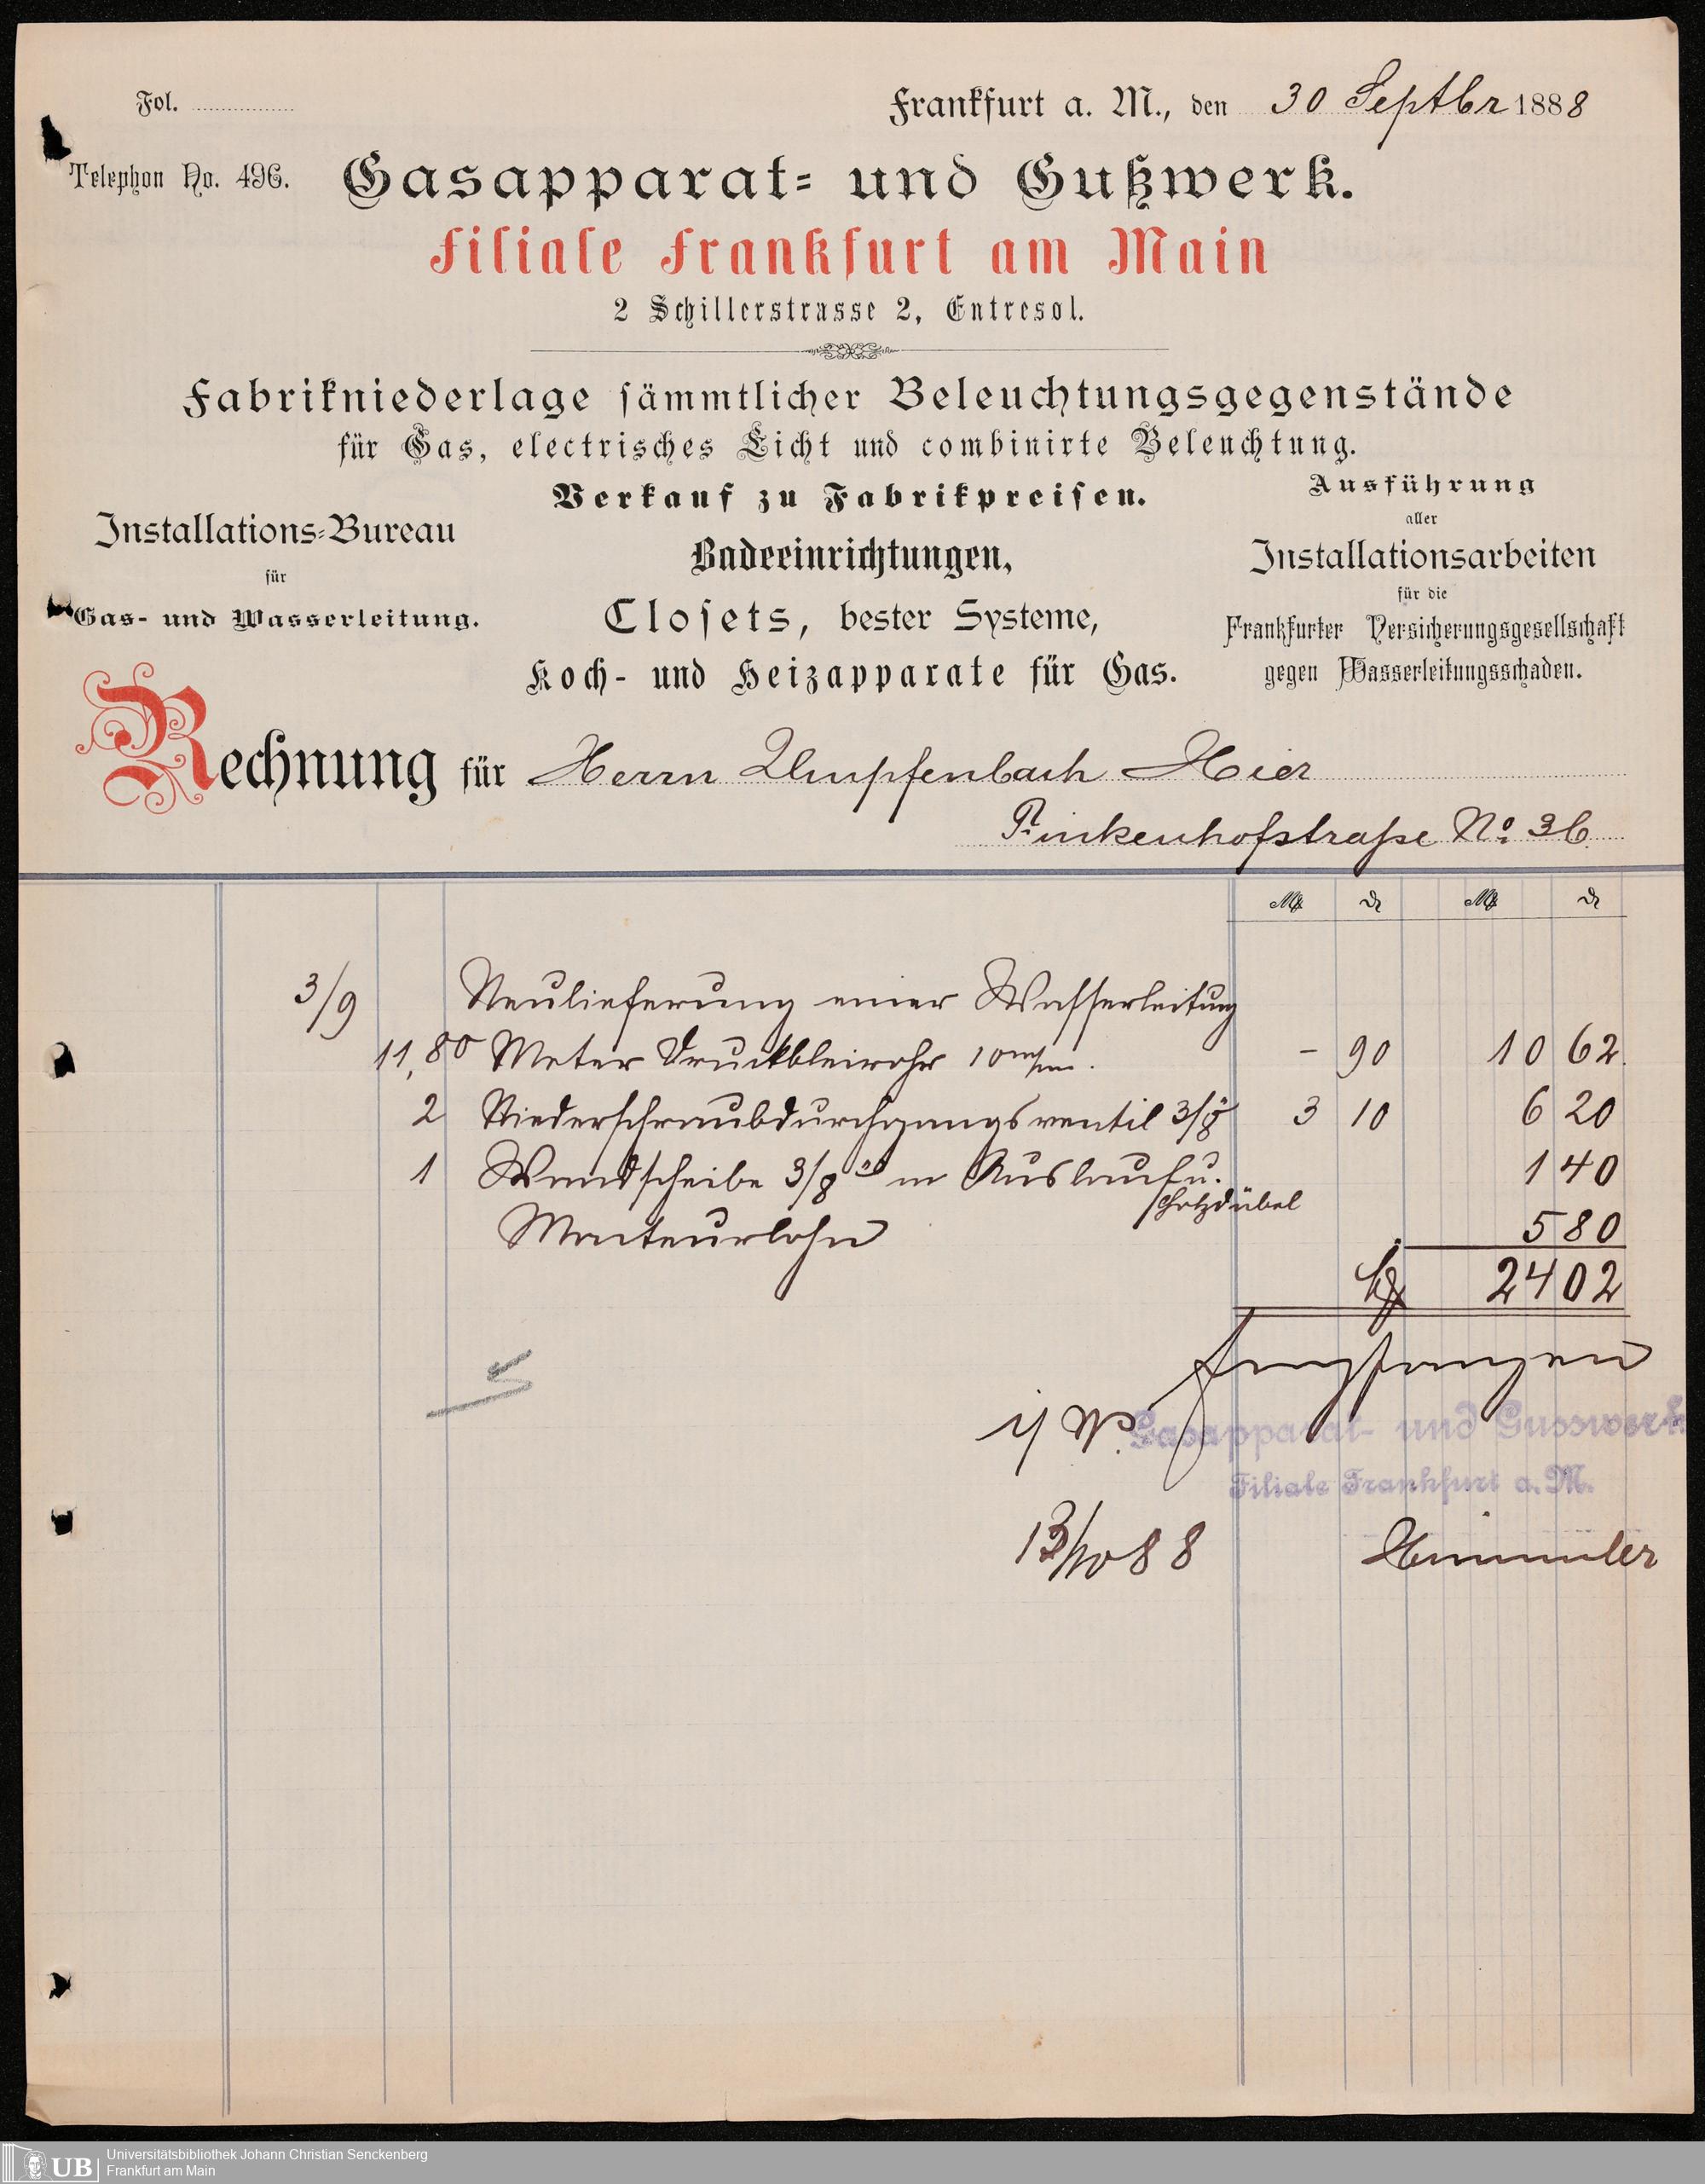 Fol.
Frankfurt a. M., den 30 Septbr 1888
Telephon No. 496.
Gasapparat- und Gußwerk.
Filiale Frankfurt am Main
2 Schillerstrasse 2, Entresol.
Fabrikniederlage sämmtlicher Beleuchtungsgegenstände
für Gas, electrisches Licht und combinirte Beleuchtung.
Verkauf zu Fabrikpreisen.
Installations-Bureau
für
Gas- und Wasserleitung.
Badeeinrichtungen,
Closets, bester Systeme,
Koch- und Heizapparate für Gas.
Ausführung
aller
Installationsarbeiten
für die
Frankfurter Versicherungsgesellschaft
gegen Wasserleitungsschaden.
Rechnung für Herrn Umpfenbach Hier
Finkenhofstraße No. 36
M ₰ M ₰
3/9 Neulieferung einer Wasserleitung
11,80 Meter Druckbleirohr 10 m/m. – 90 10 62
2 Niederschraubdurchgangsventil 3/8" 3 10 6 20
1 Wandscheibe 3/8" m Auslauf u. 1 40
Holzdübel
Monteurlohn 5 80
M 24 02
Empfangen
Gasapparat- und Gusswerk
Filiale Frankfurt a. M.
13/10 88
UB
Universitätsbibliothek Johann Christian Senckenberg
Frankfurt am Main